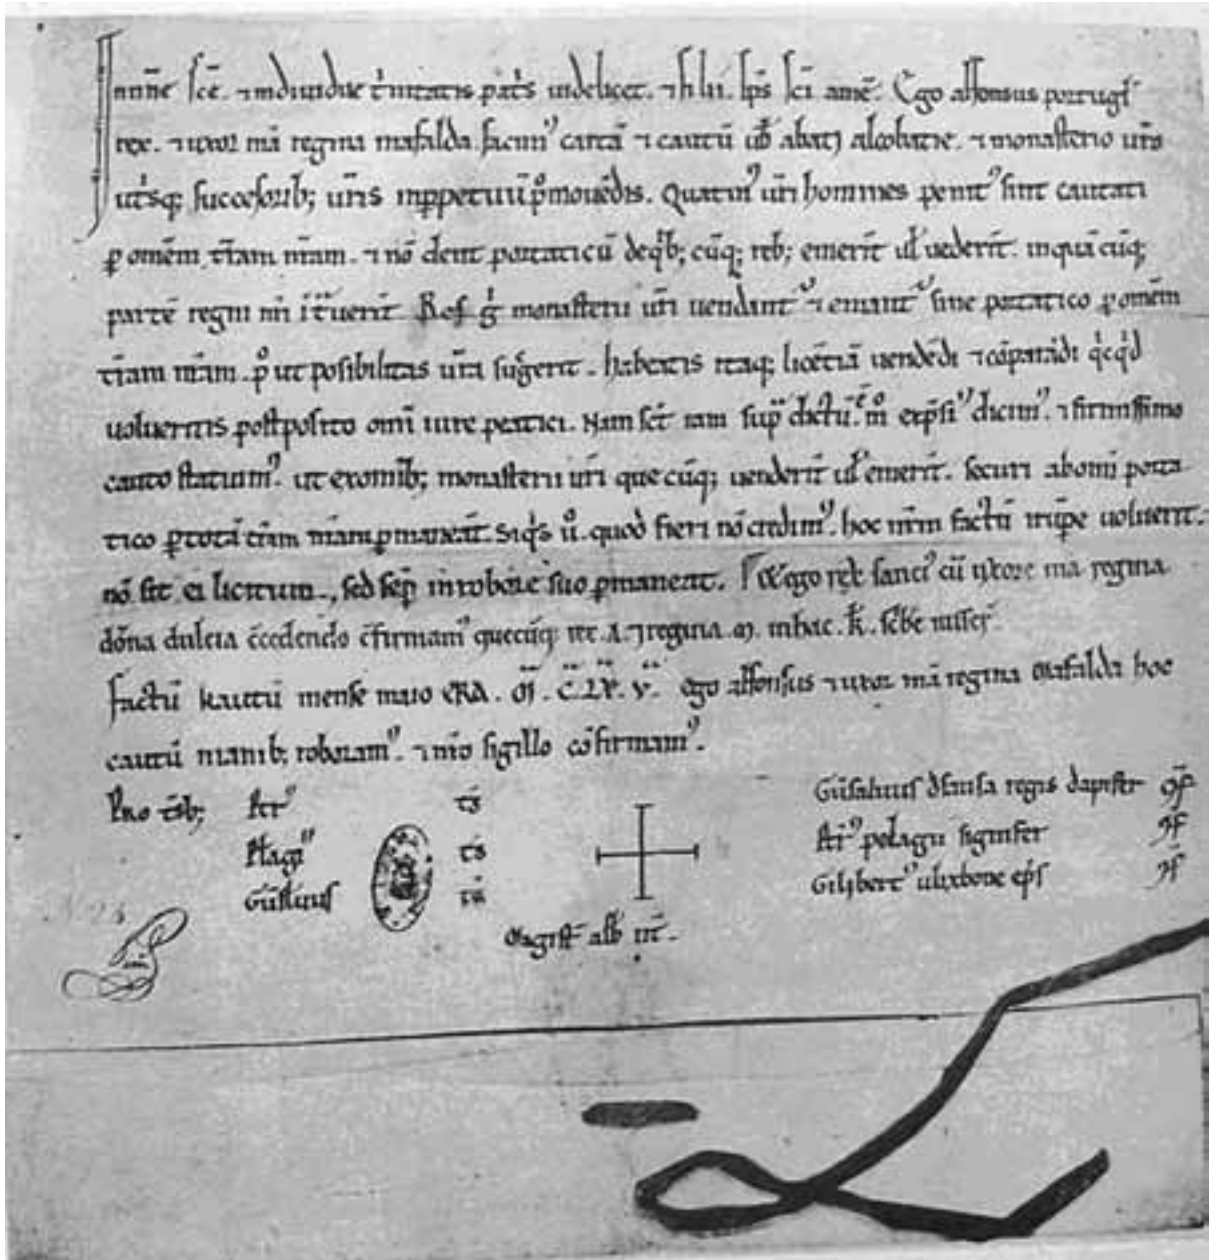 In nn̄e sc̄e. ⁊ indiuidue t'nitatis pat's uidelicet. ⁊ filii. sp̄s sc̄i am̄e. Ego alfonsus portugł
rex. ⁊ uxor mā regina mafalda. facim⁹ cartā ⁊ cautū uob̄ abati alcobatie. ⁊ monasterio ur̄o
ut'sq; successorib; ur̄is inꝑpetuū ꝓmouēdis. Quatin⁹ ur̄i homines penit⁹ sint cautati
ꝑ omēm t̄ram mr̄am. ⁊ nō dent portaticū de qⁱb; cūq; reb; emerīt uł uēderīt. in quācūq;
partē regni mī it̄uerīt. Res g° monasterii ur̄i uendant⁹ ⁊ emant⁹ sine portatico ꝑ omēm
t̄ram mr̄am. ꝓ ut posibilitas ur̄a sug̃erit. habeatis itaq; licētiā uendēdi ⁊ cōparādi qⁱcqⁱd
uolueritis postposito omī iure portatici. Nam sic̄ iam sup̄ dictū ē. m° exp̄si⁹ dicim⁹. ⁊ firmissimo
cauto statuim⁹. ut ex omīb; monasterii ur̄i que cūq; uenderīt uł emerīt. securi ab omī porta
tico ꝑ totā t̄ram mr̄am ꝑmaneāt. Si qⁱs u°. quod fieri nō credim⁹. hoc nr̄m factū irrūpe uoluerit.
nō sit ei licitum., sed sēp in robore suo ꝑmaneat. ego rex sanci⁹ cū uxore mā regina
dōna dulcia c̄cedendo c̄firmam⁹ quecūq; rex .A. ⁊ regina .M. in hac .k̄. sc̄bē iusser̄.
factū kautū mense maio ERA . M̄ . C̄ . LX̄ . V̄ . ego alfonsus ⁊ uxor mā regina Mafalda hoc
cautū manib; roboram⁹. ⁊ mō sigillo cōfirmam⁹.
Pro t̄sb; Petr⁹ t̄s
Pelagi⁹ t̄s
Gūsaluus t̄s
Gūsaluus d sausa regis dapifer 9f̄
Petr⁹ pelagii signifer 9f̄
Gilibert⁹ ulixbone ep̄s 9f̄
Magist̄ alb̄ nt̄.
Nº 24